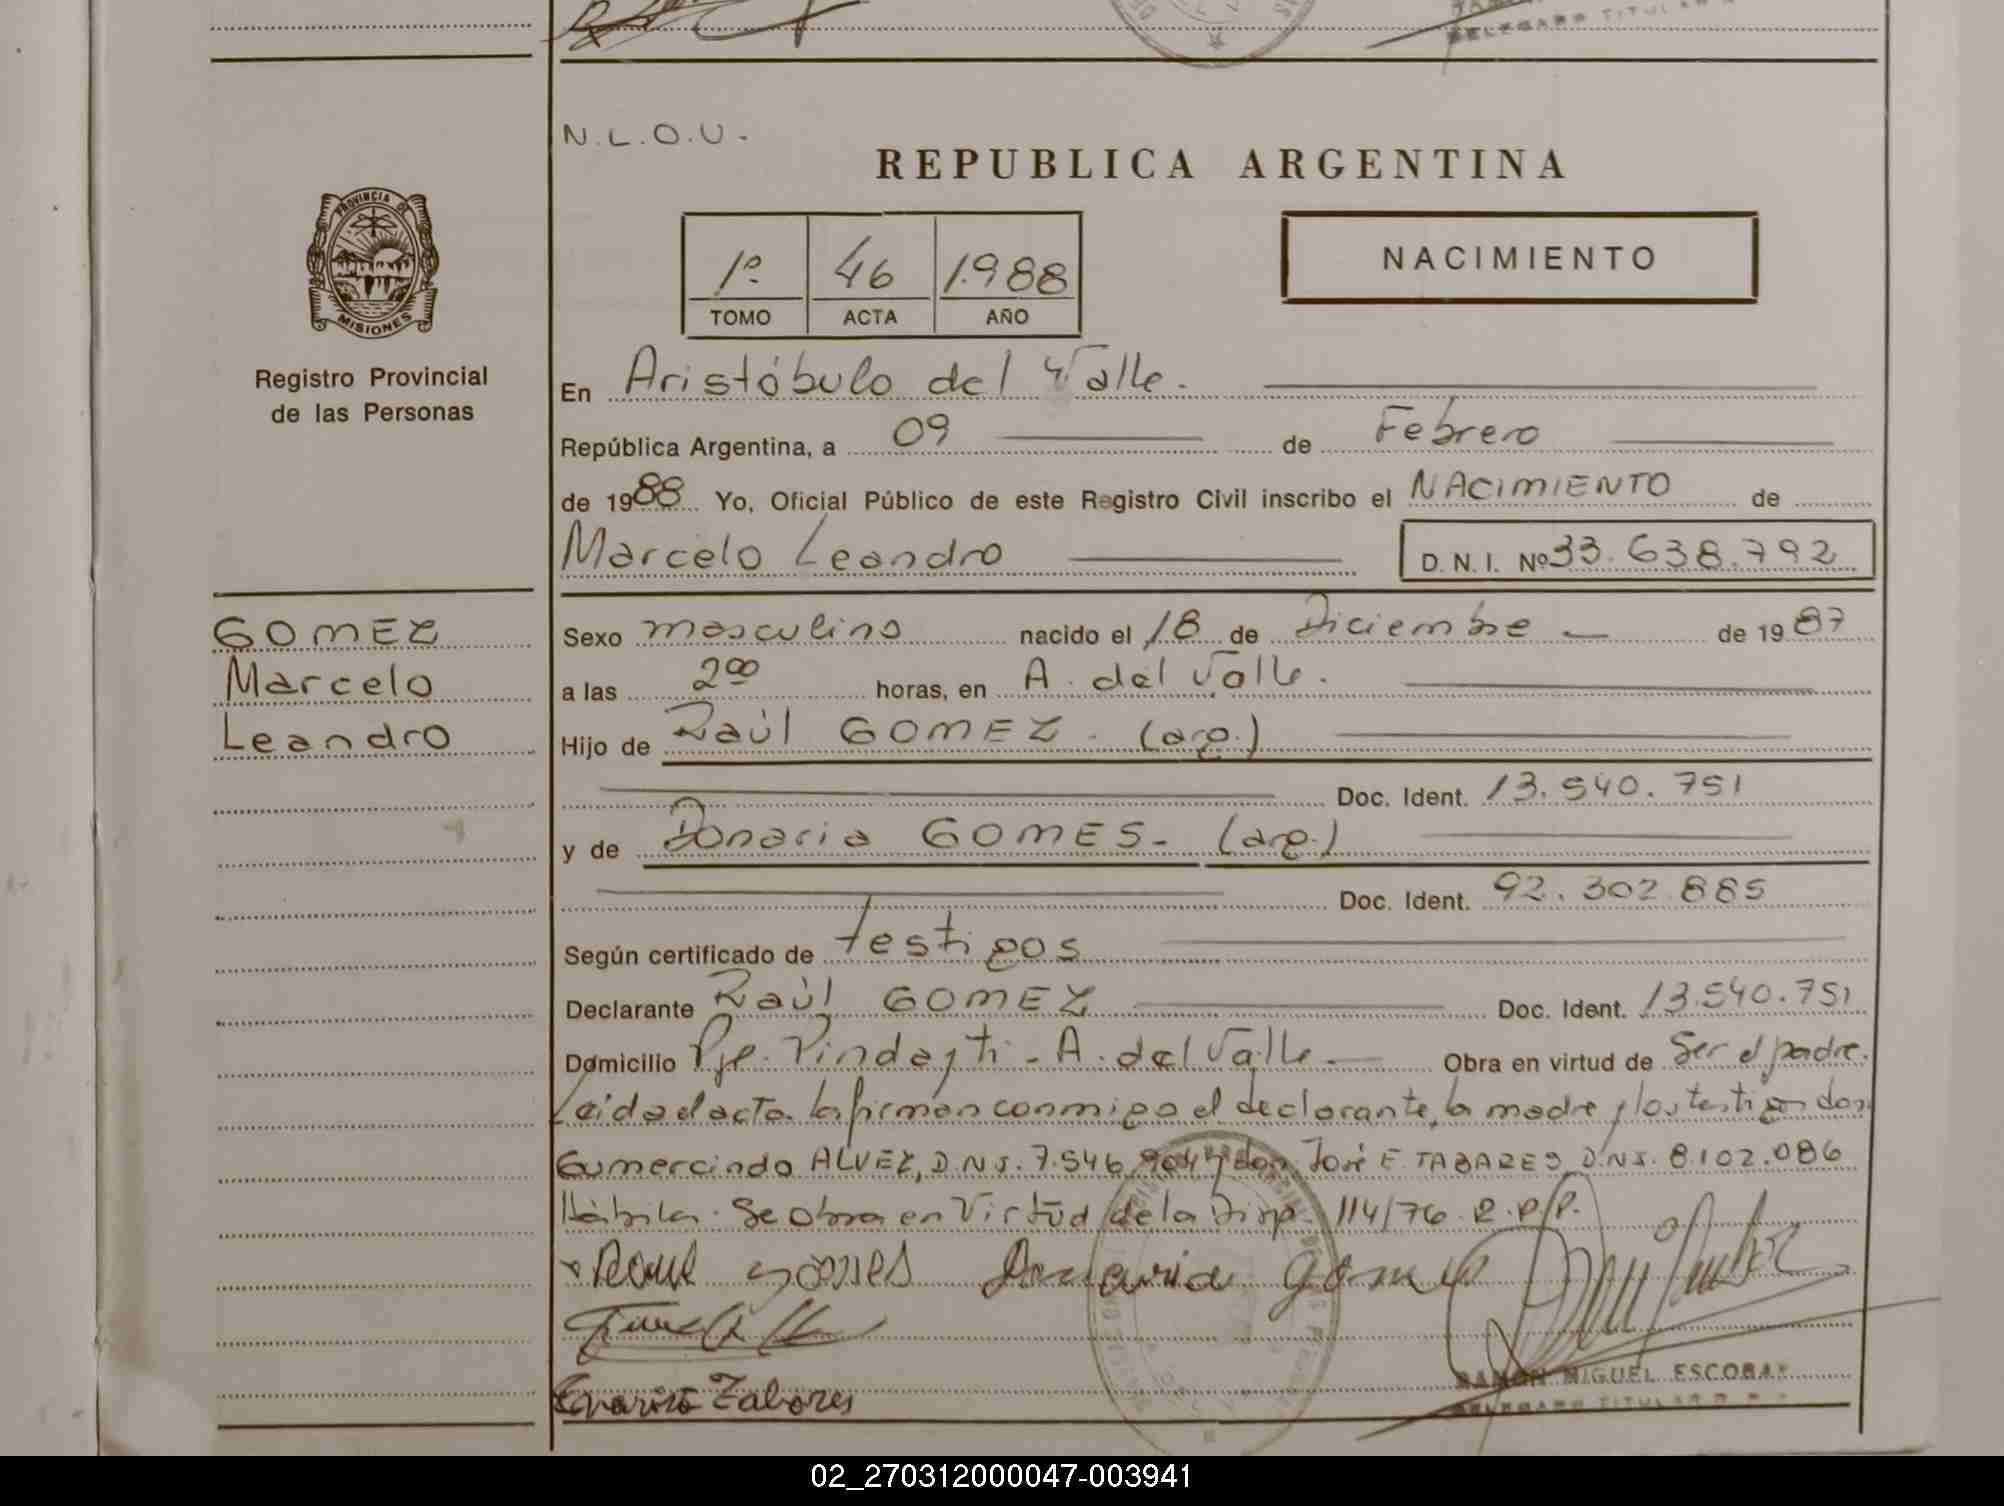 N.L.O.U.
REPUBLICA ARGENTINA
1º 46 1988
TOMO ACTA AÑO
NACIMIENTO
PROVINCIA DE
MISIONES
Registro Provincial
de las Personas
En Aristóbulo del Valle.
República Argentina, a 09 de Febrero
de 1988 Yo, Oficial Público de este Registro Civil inscribo el NACIMIENTO de
Marcelo Leandro D. N. I. Nº 33.638.792
GOMEZ
Marcelo
Leandro
Sexo masculino nacido el 18 de Diciembre de 1987
a las 2⁰⁰ horas, en A. del Valle.
Hijo de Raúl GOMEZ. (arg.)
Doc. Ident. 13.540.751
y de Donaria GOMES. (arg.)
Doc. Ident. 92.302.885
Según certificado de testigos
Declarante Raúl GOMEZ Doc. Ident. 13.540.751
Domicilio Pje. Pindayti - A. del Valle. Obra en virtud de Ser el padre.
Leida el acta la firman conmigo el declarante, la madre y los testigos don
Gumercindo ALVEZ, D.N.I. 7.546 don José E. TABARES D.N.I. 8.102.086
Hábiles. Se obra en Virtud de la Disp. 114/76 R.P.P.
Donaria
Tabores
RAMON MIGUEL ESCOBAR
DELEGADO TITULAR
02_270312000047-003941